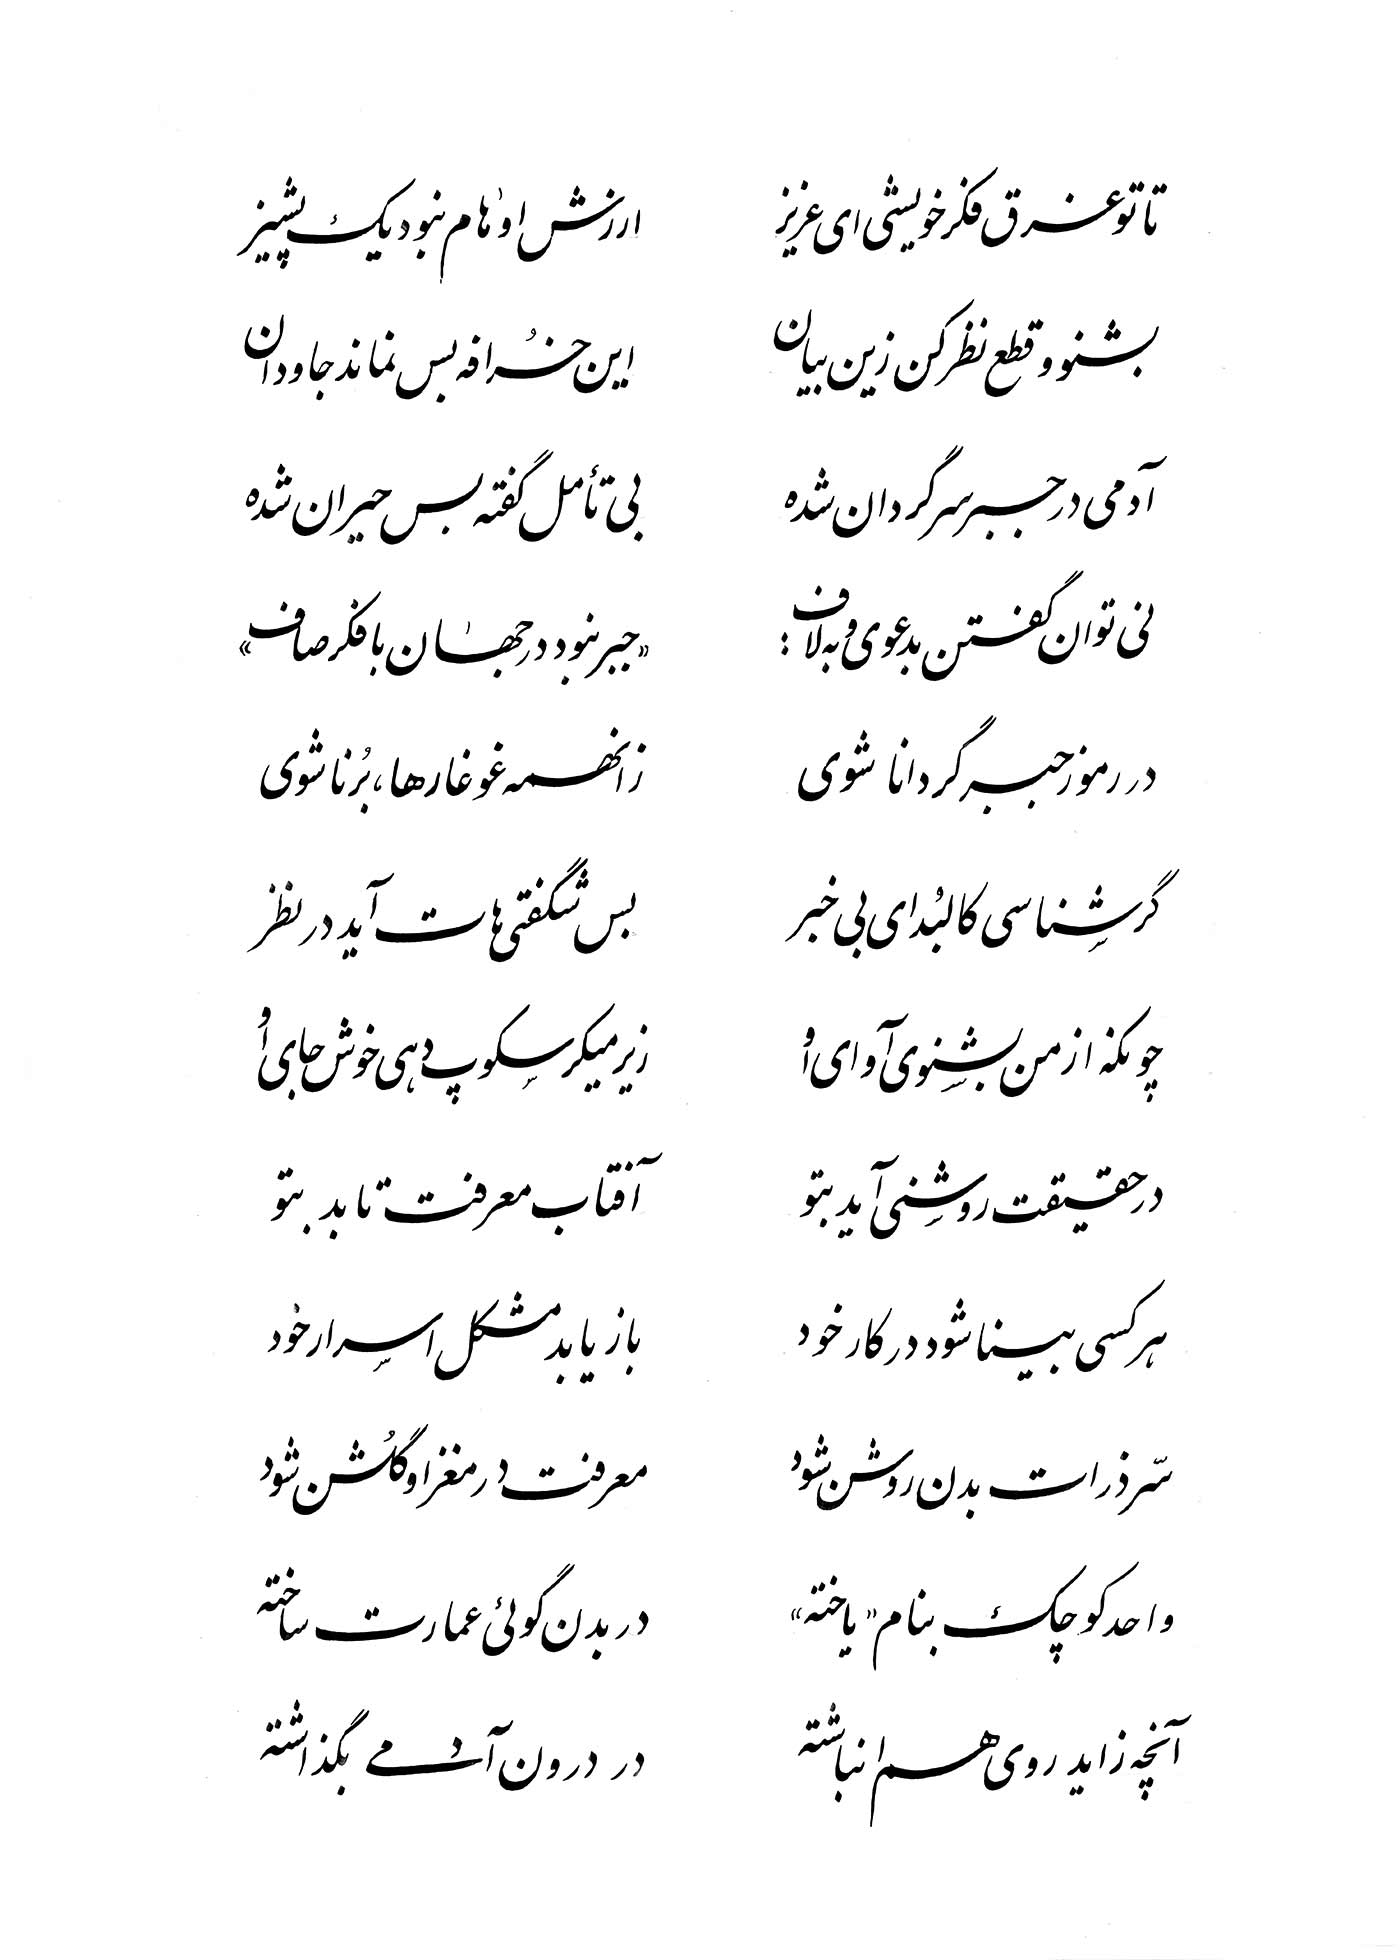 تا تو غرق فکر خویشی ای عزیز    ارزش اوهام نبود یک پشیز
بشنو و قطع نظر کن زین بیان    این خُرافه بس نماند جاودان
آدمی در جبر سرگردان شده    بی تأمل گفته بس حیران شده
نی توان گفتن بدعوی و به لاف :    «جبر نبود در جهان با فکر صاف»
در رموز جبر گر دانا شوی    زانهمه غوغا رها، بُرنا شوی
گر شِناسی کالبُد ای بی خبر    بس شگفتی هات آید در نظر
چونکه از من بشِنوی آوای اُو    زیر میکرسِکوپ دهی خوش جای اُو
در حقیقت روشِنی آید بتو    آفتاب معرفت تابد بتو
هر کسی بینا شود در کار خود    باز یابد مشکل اسِرار خُود
سّر ذرات بدن روشن شود    معرفت در مغز او گلُشن شود
واحد کوچک بنام «یاخته»    در بدن گوئی عمارت ساخته
آنچه زاید روی هم انباشته    در درون آدمی بگذاشته